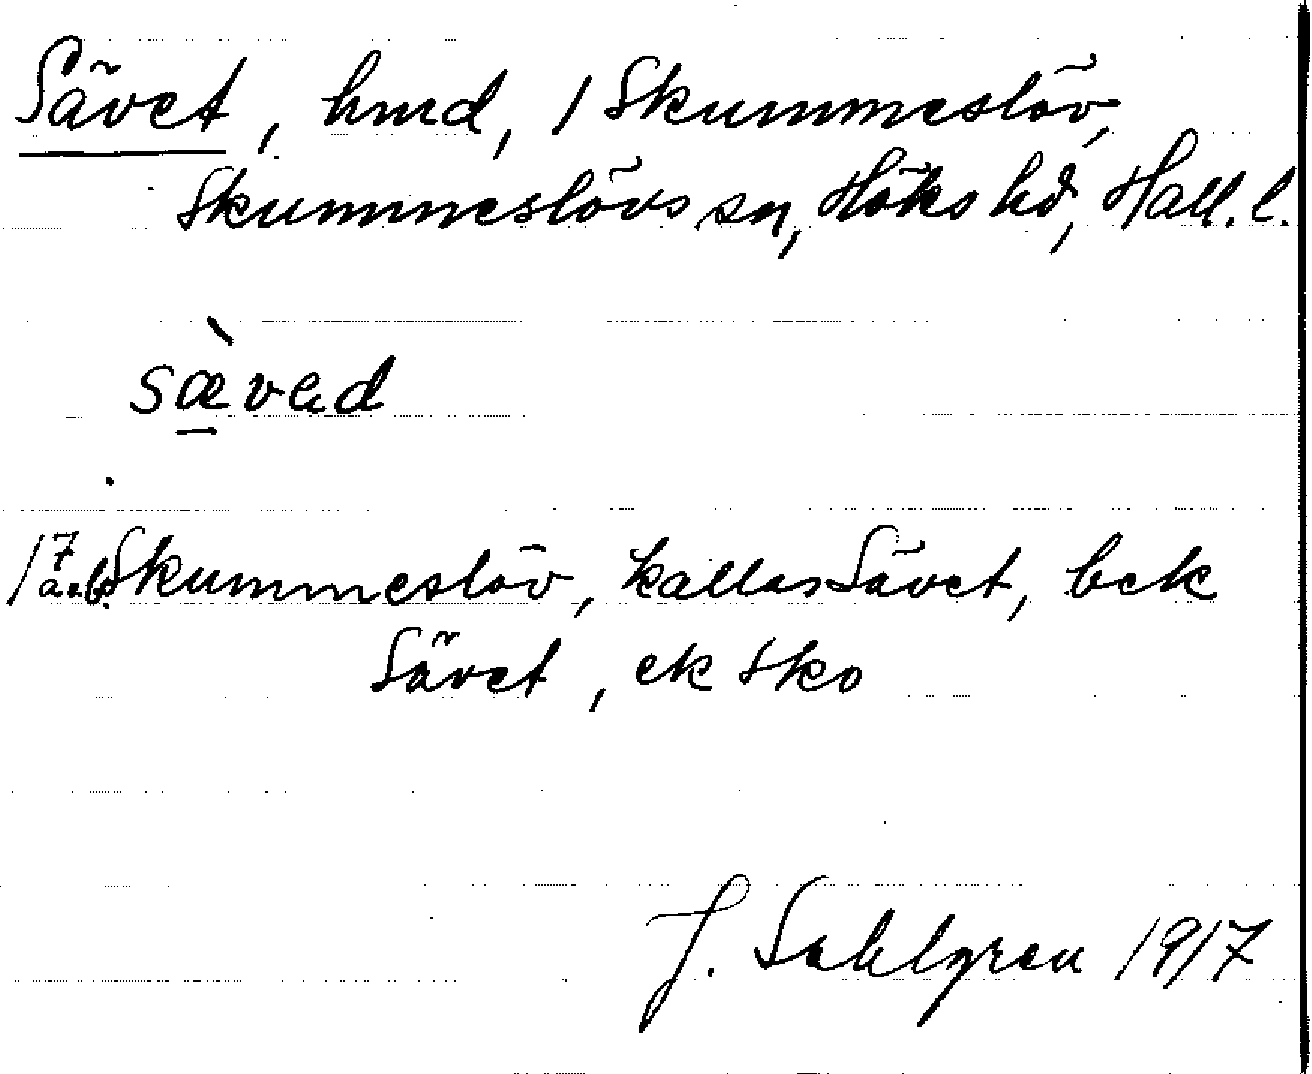 Sävet, hmd, 1 Skummeslöv,
Skummeslövs sn, Höks hd, Hall. l.
sævad
1 7 a.b. Skummeslöv, kallas Sävet, bek
Sävet, ek sko
J. Sahlgren 1917